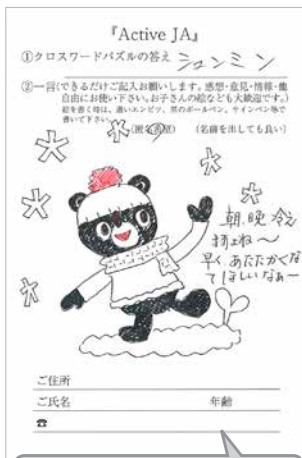 『Active JA』
①クロスワードパズルの答え シュンミン
②一言(できるだけご記入お願いします。感想・意見・情報・他
自由にお使い下さい。お子さんの絵なども大歓迎です。)
絵を書く時は、濃いエンピツ、黒のボールペン、サインペン等で
書いて下さい。
(匿名希望) (名前を出しても良い)
朝、晩 冷え
ますよね〜
早く、あたたかくなっ
てほしいなぁー
ご住所
ご氏名 年齢
☎